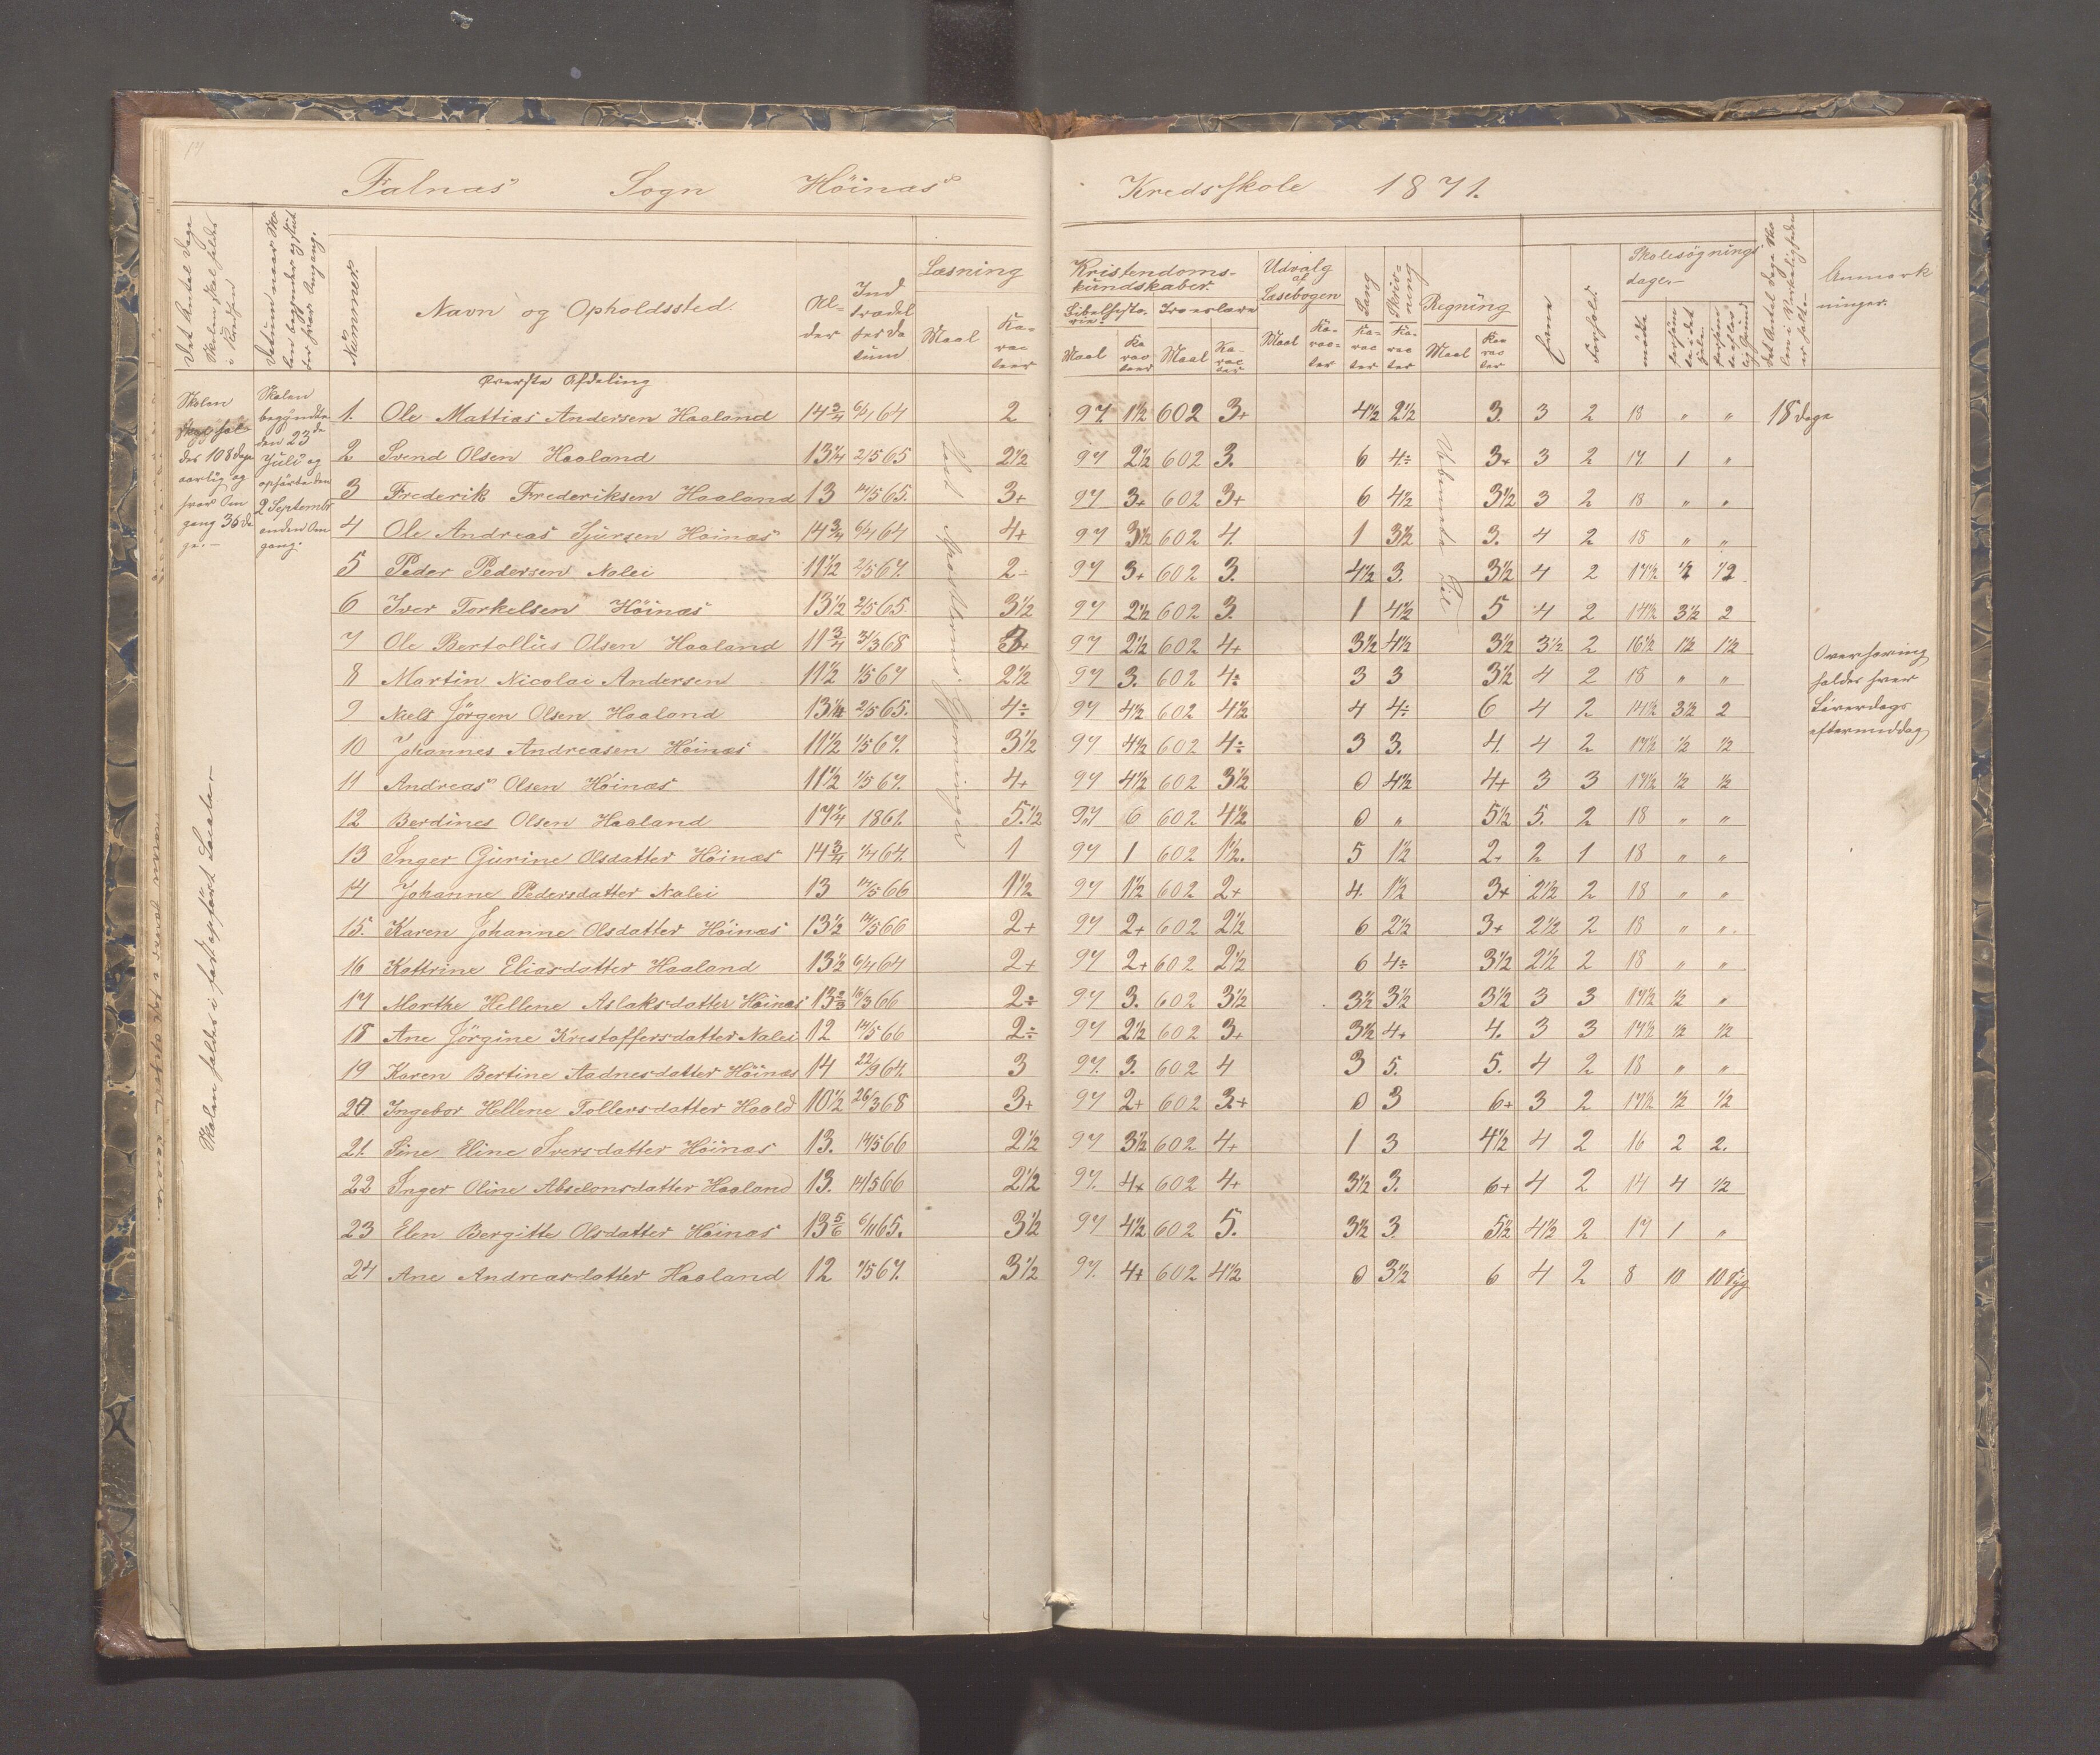 Falnæs Sogn Höinæs Kredsskole 1871.
Det Antal Dage Skolen skal holdes i Kredsen
Nummer.
Navn og Opholdssted.
Al-der
Ind trædel ses da tum
Læsning
Maal
Ka-rac teer
Kristendoms-kundskaber.
Bibelhisto-rie.
Troeslære
Maal
Ka rac teer
Maal
Ka-rac ter
Udvalg af Læsebogen
Maal
Ka-rac-ter
Sang
Ka-rac ter
Skriv-ning
Ka-rac ter
Regning
Maal
Kar rac ter
Evne
Forhold.
Skolesøgnings dage.-
mødte
Anmærk ninger.
Øverste Afdeling
Skolen
des 108 dage
aarlig og
hver Om
gang 36 da
ge.-
Skolen
begyndte
den 23de
Juli og
ophørte den
2 September
anden Om
gang.
1. Ole Mattias Andersen Haaland 14 3/4 6/4 64 2 97 1½ 602 3+ 4½ 2½ 3. 3 2 18 " " 18 dage
2 Svend Olsen Haaland 13¼ 2/5 65 2½ 97 2½ 602 3. 6 4÷ 3+ 3 2 17. 1 "
3 Frederik Frederiksen Haaland 13 14/5 65. 3+ 97 3+ 602 3+ 6 4½ 3½ 3 2 18 " "
4 Ole Andreas Sjursen Höinæs 14 3/4 6/4 64 4+ 97 3½ 602 4. 1 3½ 3. 4 2 18 " "
5 Peder Pedersen Nalei 11½ 2/5 67. 2÷ 97 3+ 602 3. 4½ 3. 3½ 4 2 17½ ½ ½
6 Iver Torkelsen Höinæs 13½ 2/5 65. 3½ 97 2½ 602 3. 1 4½ 5 4 2 14½ 3½ 2
7 Ole Bertollus Olsen Haaland 11 3/4 31/3 68 3+ 97 2½ 602 4+ 3½ 4½ 3½ 3½ 2 16½ 1½ 1½
8 Martin Nicolai Andersen 11½ 1/5 67 2½ 97 3. 602 4÷ 3 3 3½ 4 2 18 " "
9 Niels Jörgen Olsen Haaland 13¼ 2/5 65. 4÷ 97 4½ 602 4½ 4 4÷ 6 4 2 14½ 3½ 2
10 Johannes Andreasen Höinæs 11½ 1/5 67. 3½ 97 4½ 602 4÷ 3 3. 4. 4 2 17½ ½ ½
11 Andreas Olsen Höinæs 11½ 1/5 67. 4+ 97 4½ 602 3½ 0 4½ 4+ 3 3 17½ ½ ½
12 Berdines Olsen Haaland 17¼ 1861. 5.½ 97 6 602 4½ 0 " 5½ 5. 2 18 " "
13 Inger Gurine Olsdatter Höinæs 14 3/4 1/4 64. 1 97 1 602 1½. 5 1½ 2+ 2 1 18 " "
14 Johanne Pedersdatter Nalei 13 14/5 66 1½ 97 1½ 602 2+ 4. 1½ 3+ 2½ 2 18 " "
15. Karen Johanne Olsdatter Höinæs 13½ 14/5 66 2+ 97 2+ 602 2½ 6 2½ 3+ 2½ 2 18 " "
16 Kattrine Eliasdatter Haaland 13½ 6/4 64 2+ 97 2+ 602 2½ 6 4÷ 3½ 2½ 2 18 " "
17 Marthe Hellene Aslaksdatter Höinæs 13 2/3 16/3 66 2÷ 97 3. 602 3½ 3½ 3½ 3½ 3 3 17½ ½ "
18 Ane Jörgine Kristoffersdatter Nalei 12 14/5 66 2÷ 97 2½ 602 3+ 3½ 4+ 4. 3 3 17½ ½ ½
19 Karen Bertine Aadnesdatter Höinæs 14 22/9 64. 3 97. 3. 602 4 3 5. 5. 4 2 18 " "
20 Ingebor Hellene Tollersdatter Haald 10½ 26/3 68 3+ 97 2+ 602 3.+ 0 3 6+ 3 2 17½ ½ ½
21. Sine Eline Iversdatter Höinæs 13. 14/5 66 2½ 97 3½ 602 4+ 1 3 4½ 4 2 16 2 2.
22 Inger Oline Abselonsdatter Haaland 13. 14/5 66 2½ 97. 4+ 602 4+ 3½ 3. 6+ 4 2 14 4 ½
23 Elen Bergitte Olsdatter Höinæs 13 5/6 6/11 65. 3½ 97 4½ 602 5. 3½ 3. 5½ 4½ 2 17 1 "
24 Ane Andreasdatter Haaland 12 1/5 67. 3½ 97. 4+ 602 4½ 0 3½ 6 4 2 8 10 10 Syg
Overhøring
holdes hver
Löverdags
eftermiddag
Skolen holdes i fast opført Locale.-